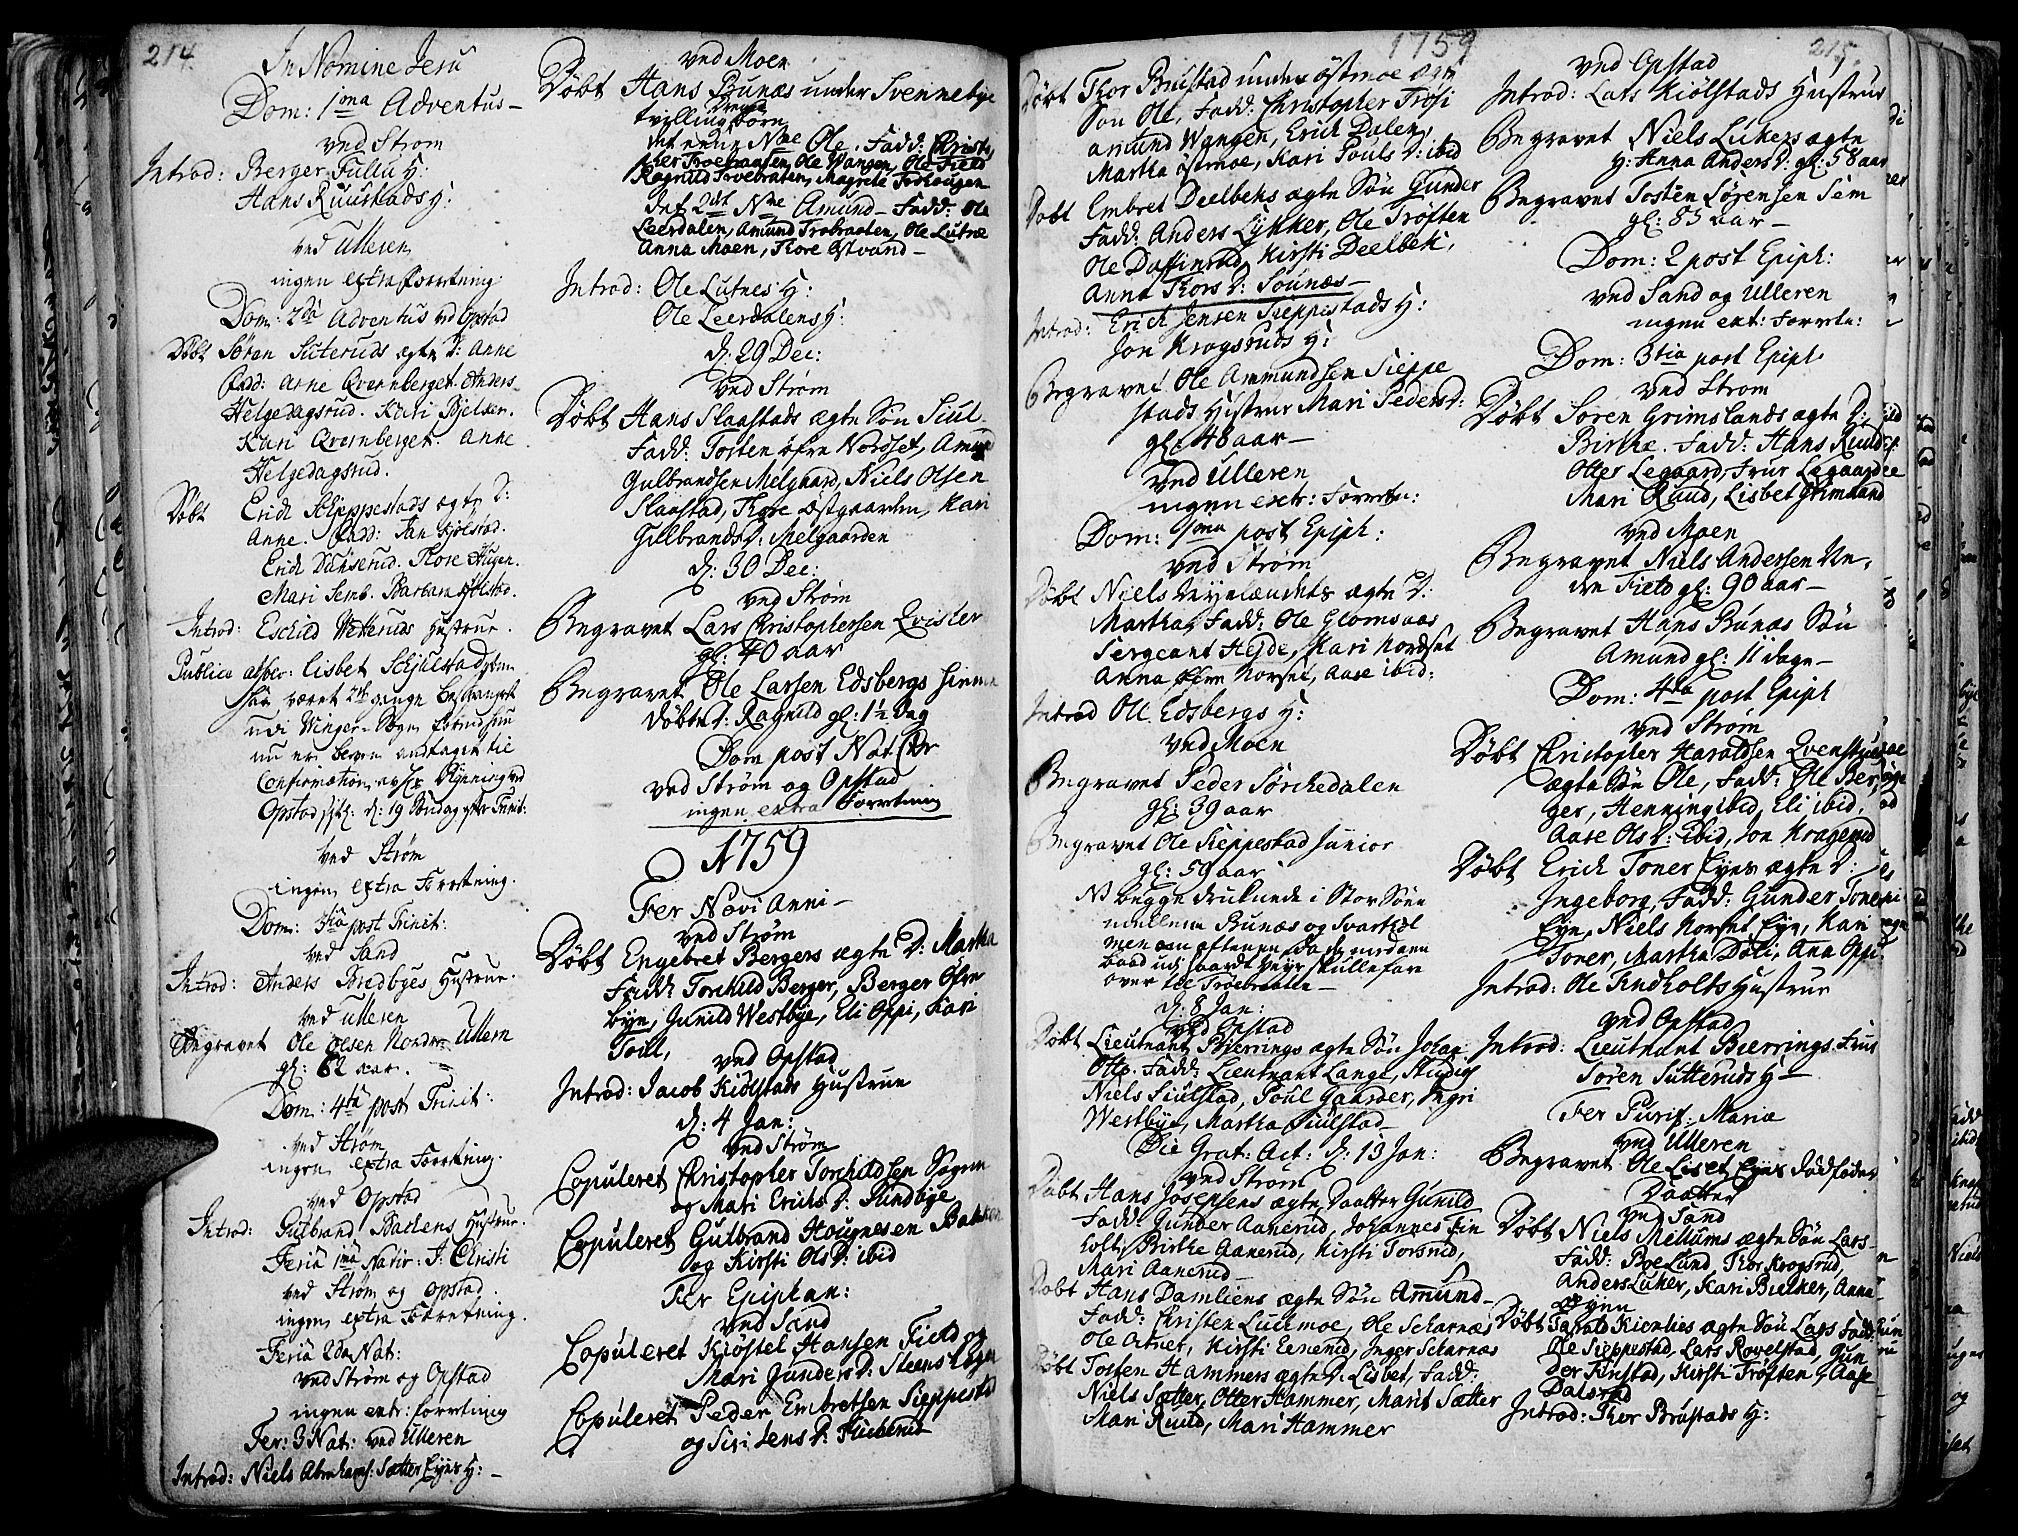 214.
In Nomine Jesu
Dom: 1ma Adventus
ved Strøm
Introd: Berger Fullu H:
Hans Ruustads H:
ved Ulleren
ingen extra Forretning
Dom: 2da Adventus ved Opstad
Døbt Søren Suteruds ægte D: Anne
Fadd: Arne Qvernberget. Anders
Helgedagsrud. Kari
Kari Qvernberget. Anne
Helgedagsrud.
Døbt Erich Sieppestads ægte D:
Anne. Fadd: Jan Kiølstad.
Erich Thore Hugen.
Mari Semb. Barbara Kiølstad.
Introd: Eschild Hustrue.
Publice absolv: Lisbet
har været 2de gange besvangret
udi Winger
nu er
Confirmation
Opstad d: 19 Søndag efter Trinit:
ved Strøm
ingen extra Forretning.
Dom: 3tia post Trinit:
ved Sand
Introd: Anders Bredbyes Hustrue.
ved Ulleren
Begravet Ole Olsen Nordre Ullern
gl: 62 aar.
Dom: 4ta post Trinit:
ved Strøm
ingen extra Forretning.
ved Opstad
Introd: Gulbrand Hustrue.
Feria 1ma Nativ: J: Christi
ved Strøm og Opstad
ingen extra Forretning.
Feria 2da Nat:
ved Strøm og Opstad
ingen extr: Forretning
Fer: 3 Nat: ved Ulleren
Introd: Niels Abrahams: Sætter Eyes H:
ved Moen
Døbt Hans Bunæs under Svennebye
tvilling børn
det eene Nne Ole. Fadd: Christo,
pher Troebraaten, Ole Wangen, Ole Field
Ragnild Troebraten, Magrete
Det 2det Nne Amund - Fadd: Ole
Leerdalen, Amund Trobraaten, Ole Lutnæ
Anna Moen, Thore Ostvand
Introd: Ole Lutnes H:
Ole Leerdalens H:
d: 29 Dec:
ved Strøm
Døbt Hans Slaastads ægte Søn Siul
Fadd: Tosten øfre Nordset, Amund
Gulbrandsen Melgaard, Niels Olsen
Slaastad, Thore Østgaarden, Kari
Gulbrands D: Melgaarden
d: 30 Dec:
ved Strøm
Begravet Lars Christophersen Qvisler
gl: 40 aar
Begravet Ole Larsen Edsbergs hiemme
døbte D: Ragnild gl: 1½ Dag
Dom post Nat Chr
ved Strøm og Opstad
ingen extra Forretning
1759
Fer Novi Anni
ved Strøm
Døbt Engebret Bergers ægte D: Martha
Fadd: Torchild Berger, Berger Øfre
byen, Gunild Westbye, Eli Oppi, Kari
Toill,
ved Opstad
Introd: Jacob Kiølstads Hustrue
d: 4 Jan:
ved Strøm
Copuleret Christopher Torchildsen Sagen
og Mari Erichs D: Sundbye
Copuleret Gulbrand Haugnesen Bakken
og Kirsti Ols D: ibid
Fer Epiphan:
ved Sand
Copuleret Kiøstel Hansen Field og
Mari Gunders D: Steens Eger
Copuleret Peder Embretsen Sieppestad
og Siri Jens D:
1759
Døbt Thor Brustad under Østmoe ægte
Søn Ole, Fadd: Christopher Trosi
Amund Wangen, Erich Dalen,
Martha Østmoe, Kari Pouls D: ibid
Døbt Embret Deelbeks ægte Søn Gunder
Fadd: Anders Lykker, Ole Trøften
Ole Daffinrud, Kirsti Deelbek,
Anna Thors D: Sounæs
Introd: Erich Jensen Sieppestads H:
Jon Krogsruds H:
Begravet Ole Ammundsen Sieppe
stads Hustrue Mari Peders D:
gl: 48 aar
ved Ulleren
ingen extr: Forretn:
Dom: 1ma post Epiph:
ved Strøm
Døbt Niels ægte D:
Martha, Fadd: Ole Glomsaas
Sergeant Heyde, Kari Nordset
Anna øfre Norset, Aase ibid:
Introd Ole Edsbergs H:
ved Moen
Begravet Peder Sørchedalen
gl: 39 aar
Begravet Ole Sieppestad Junior
gl: 59 aar
NB begge druknede i Stor Søen
mellem Bunæs og Svarthol
men om aftenen da de med en
baad udj haardt Veyr skulle fare
over til Troebraaten
d: 8 Jan:
ved Opstad
Døbt Lieutnant Bierrings ægte Søn Johan
Otto. Fadd: Lieutnant Lange, Studios
Niels Siulstad, Poul Gaarder, Ingri
Westbye, Martha Siulstad
Die Grat: Act: d: 13 Jan:
ved Strøm
Døbt Hans Josephsens ægte Daatter Gunild
Fadd: Gunder Aanerud, Johannes Fin
holt, Birthe Aanerud, Kirsti Torsrud,
Mari Aanerud
Døbt Hans Damliens ægte Søn Amund
Fadd: Christen Lustmoe, Ole Scharnæs
Ole Atner, Kirsti Eenerud, Inger Scharnæs
Døbt Tosten Hammers ægte D: Lisbet, Fadd:
Niels Sætter, Otter Hammer, Marit Sætter
Mari Ruud, Mari Hammer
215.
ved Opstad
Introd: Lars Kiølstads Hustrue
Begravet Niels Lukers ægte
H: Anna Anders D: gl: 58 aar
Begravet Tosten Sørensen Sem
gl: 83 aar
Dom: 2 post Epiph:
ved Sand og Ulleren
ingen ext: Forretn:
Dom: 3tia post Epiph
ved Strøm
Døbt Søren Grimslands ægte D:
Birthe. Fadd: Hans Ruud,
Otter Legaard, Frue Lægaard
Mari Ruud, Lisbet Grimsland
ved Moen
Begravet Niels Andersen Ne,
dre Field gl: 90 aar
Begravet Hans Bunæs Søn
Amund gl: 11 dage
Dom: 4ta post Epiph
ved Strøm
Døbt Christopher Haraldsen
ægte Søn Ole, Fadd: Ole Ber,
ger, Henning ibid, Eli ibid,
Aase Ols D: ibid, Jon Kragerud
Døbt Erich Toner Eyes ægte D:
Ingeborg, Fadd: Gunder Toner
Eye, Niels Norset Eye, Kari
Toner, Martha Døli, Ana Oppi.
Introd: Ole Findholts Hustrue
ved Opstad
Introd: Lieutnant Bierrings Frue
Søren Sutteruds H
Fer Purif: Mariæ
ved Ulleren
Begravet Ole Liset Eyes dødfødde
Daatter
ved Sand
Døbt Niels Mellums ægte Søn Lars
Fadd: Boe Lund, Thor Krogsrud,
Anders Luker, Kari Bielker, Anna
Øyen
Døbt Harald ægte Søn Lars Fadd:
Ole Sieppestad, Lars Rovelstad, Gun
der Finstad, Kirsti Trøften, Aase
Dalsrud
Introd: Thor Brustads H: